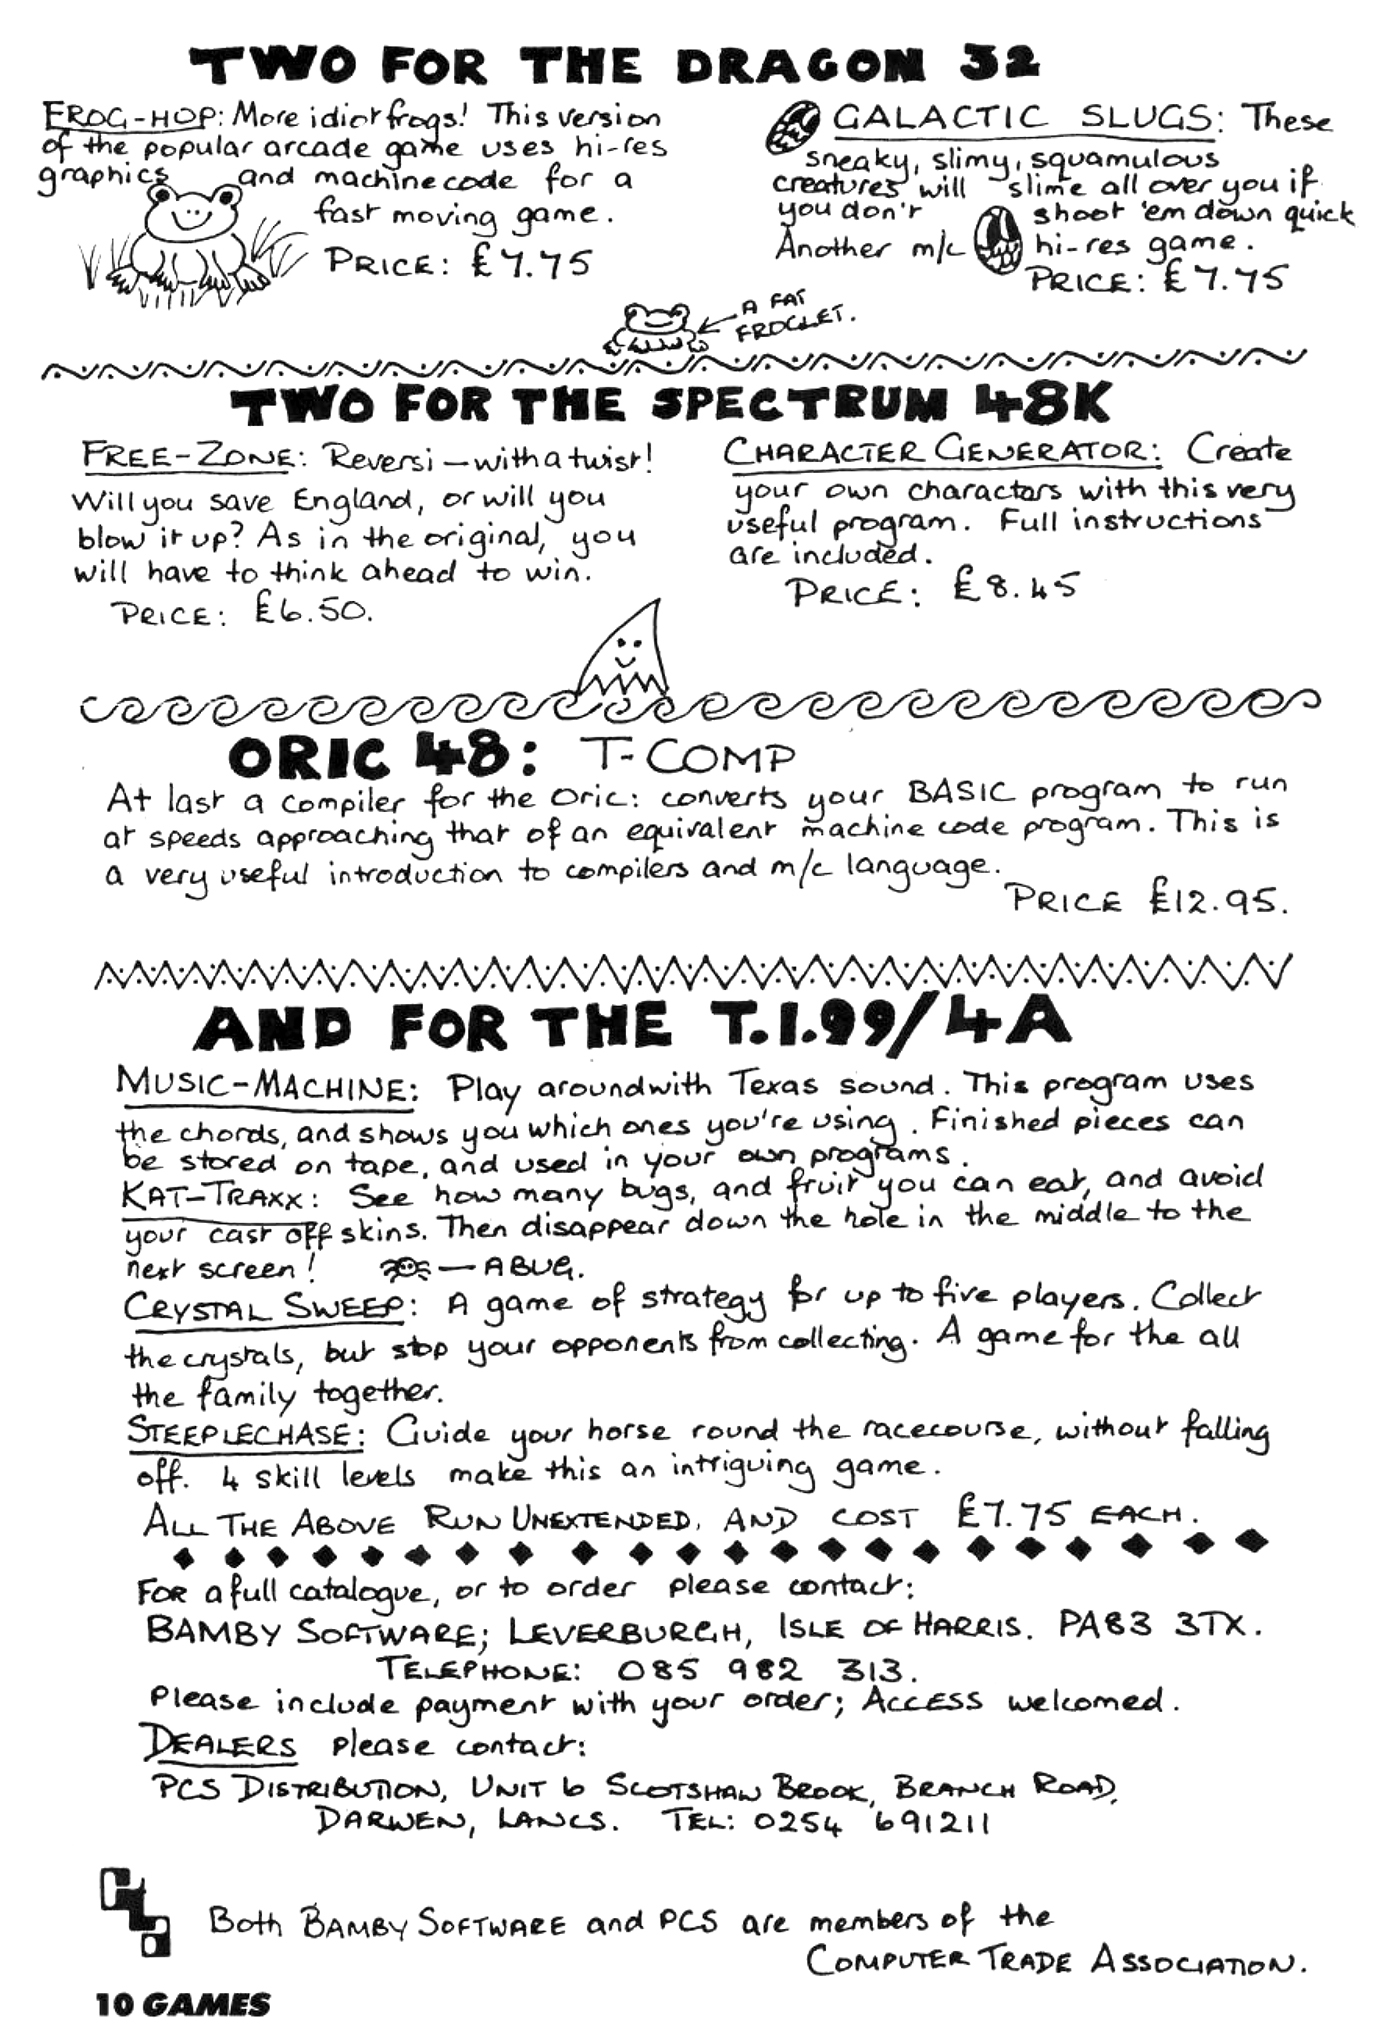 TWO FOR THE DRAGON 32
FROG-HOP: More idiot frogs! This version
of the popular arcade game uses hi-res
graphics and machine code for a
fast moving game.
PRICE: £7.75
GALACTIC SLUGS: These
sneaky, slimy, squamulous
creatures will slime all over you if
you don't shoot 'em down quick
Another m/c hi-res game.
PRICE: £7.75
A FAT
FROGLET.
TWO FOR THE SPECTRUM 48K
FREE-ZONE: Reversi – with a twist!
Will you save England, or will you
blow it up? As in the original, you
will have to think ahead to win.
PRICE: £6.50.
CHARACTER GENERATOR: Create
your own charactors with this very
useful program. Full instructions
are included.
PRICE: £8.45
ORIC 48: T-COMP
At last a compiler for the Oric: converts your BASIC program to run
at speeds approaching that of an equivalent machine code program. This is
a very useful introduction to compilers and m/c language.
PRICE £12.95.
AND FOR THE T.I.99/4A
MUSIC-MACHINE: Play around with Texas sound. This program uses
the chords, and shows you which ones you're using. Finished pieces can
be stored on tape, and used in your own programs.
KAT-TRAXX: See how many bugs, and fruit you can eat, and avoid
your cast off skins. Then disappear down the hole in the middle to the
next screen! – A BUG.
CRYSTAL SWEEP: A game of strategy for up to five players. Collect
the crystals, but stop your opponents from collecting. A game for the all
the family together.
STEEPLECHASE: Guide your horse round the racecourse, without falling
off. 4 skill levels make this an intriguing game.
ALL THE ABOVE RUN UNEXTENDED, AND COST £7.75 EACH.
FOR a full catalogue, or to order please contact:
BAMBY SOFTWARE; LEVERBURGH, ISLE OF HARRIS. PA83 3TX.
TELEPHONE: 085 982 313.
Please include payment with your order; ACCESS welcomed.
DEALERS please contact:
PCS DISTRIBUTION, UNIT 6 SCOTSHAW BROOK, BRANCH ROAD,
DARWEN, LANCS. TEL: 0254 691211
Both BAMBY SOFTWARE and PCS are members of the
COMPUTER TRADE ASSOCIATION.
10 GAMES